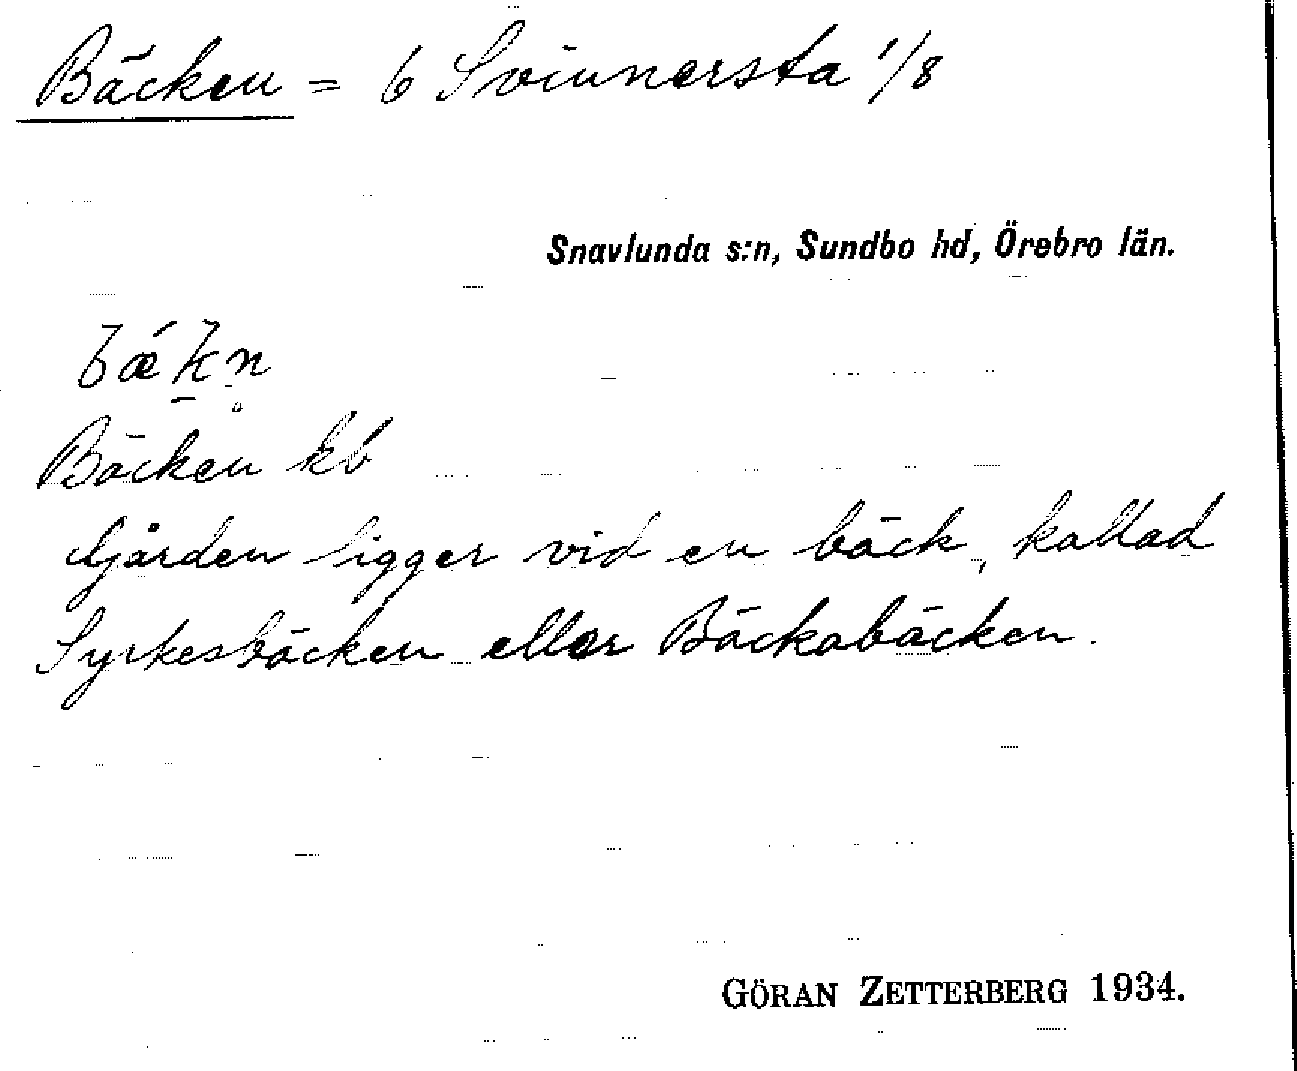 Bäcken = 6 Svinnersta 1/8
Snavlunda s:n, Sundbo hd, Örebro län.
bæ´k̠n̥
Bäcken kb
Gården ligger vid en bäck, kallad
Syrkesbäcken eller Bäckabäcken.
GÖRAN ZETTERBERG 1934.